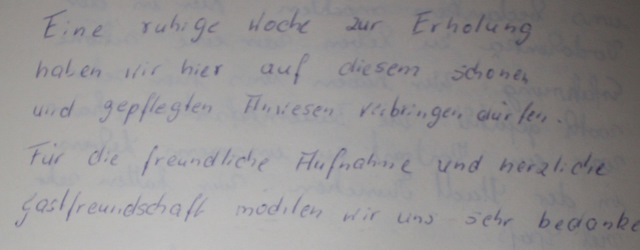 Eine ruhige Woche zur Erholung
haben wir hier auf diesem schönen
und gepflegten Anwesen verbringen dürfen.
Für die freundliche Aufnahme und herzliche
Gastfreundschaft möchten wir uns sehr bedanke